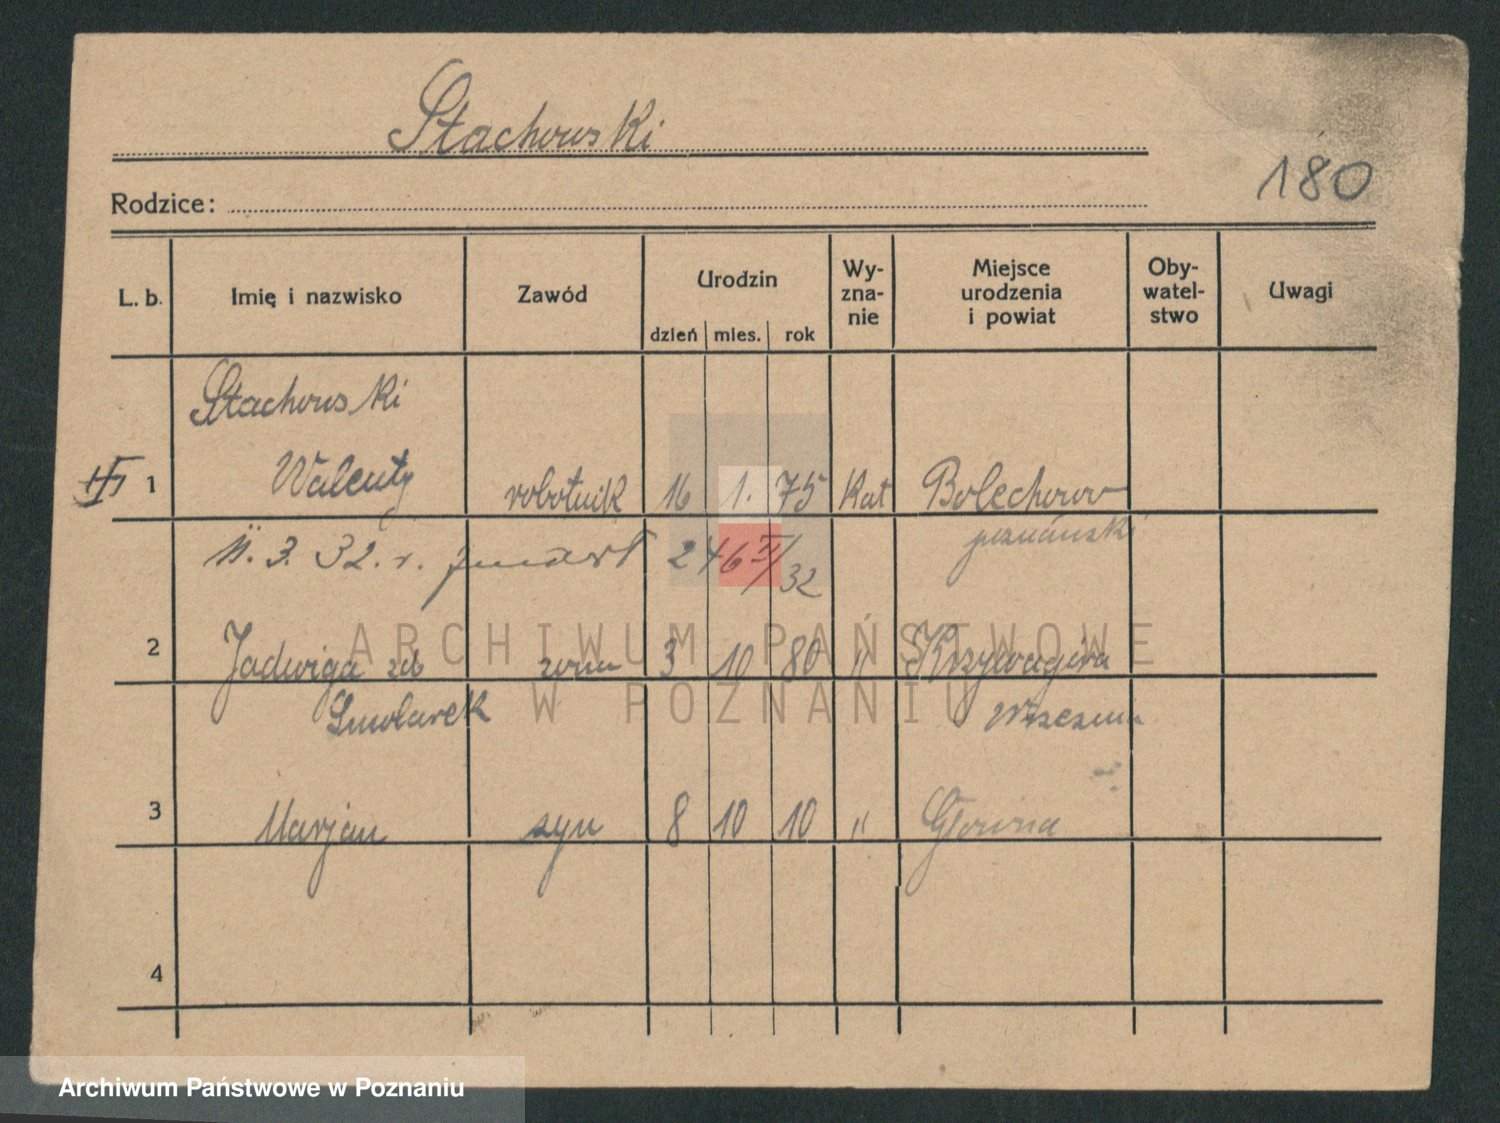 Stachowski
180
Rodzice:
L. b. Imię i nazwisko Zawód Urodzin Wy-zna-nie Miejsce urodzenia i powiat Oby-watel-stwo Uwagi
dzień mies. rok
Stachowski
1 Walenty robotnik 16 1. 75 Kat Bolechowo
poznański
3. 32. r. 246 II/32
2 Jadwiga zd żona 3 10 80 " Krzywagóra
Smolarek Września
3 Marjan syn 8 10 10 " Główna
4
ARCHIWUM PAŃSTWOWE
W POZNANIU
Archiwum Państwowe w Poznaniu